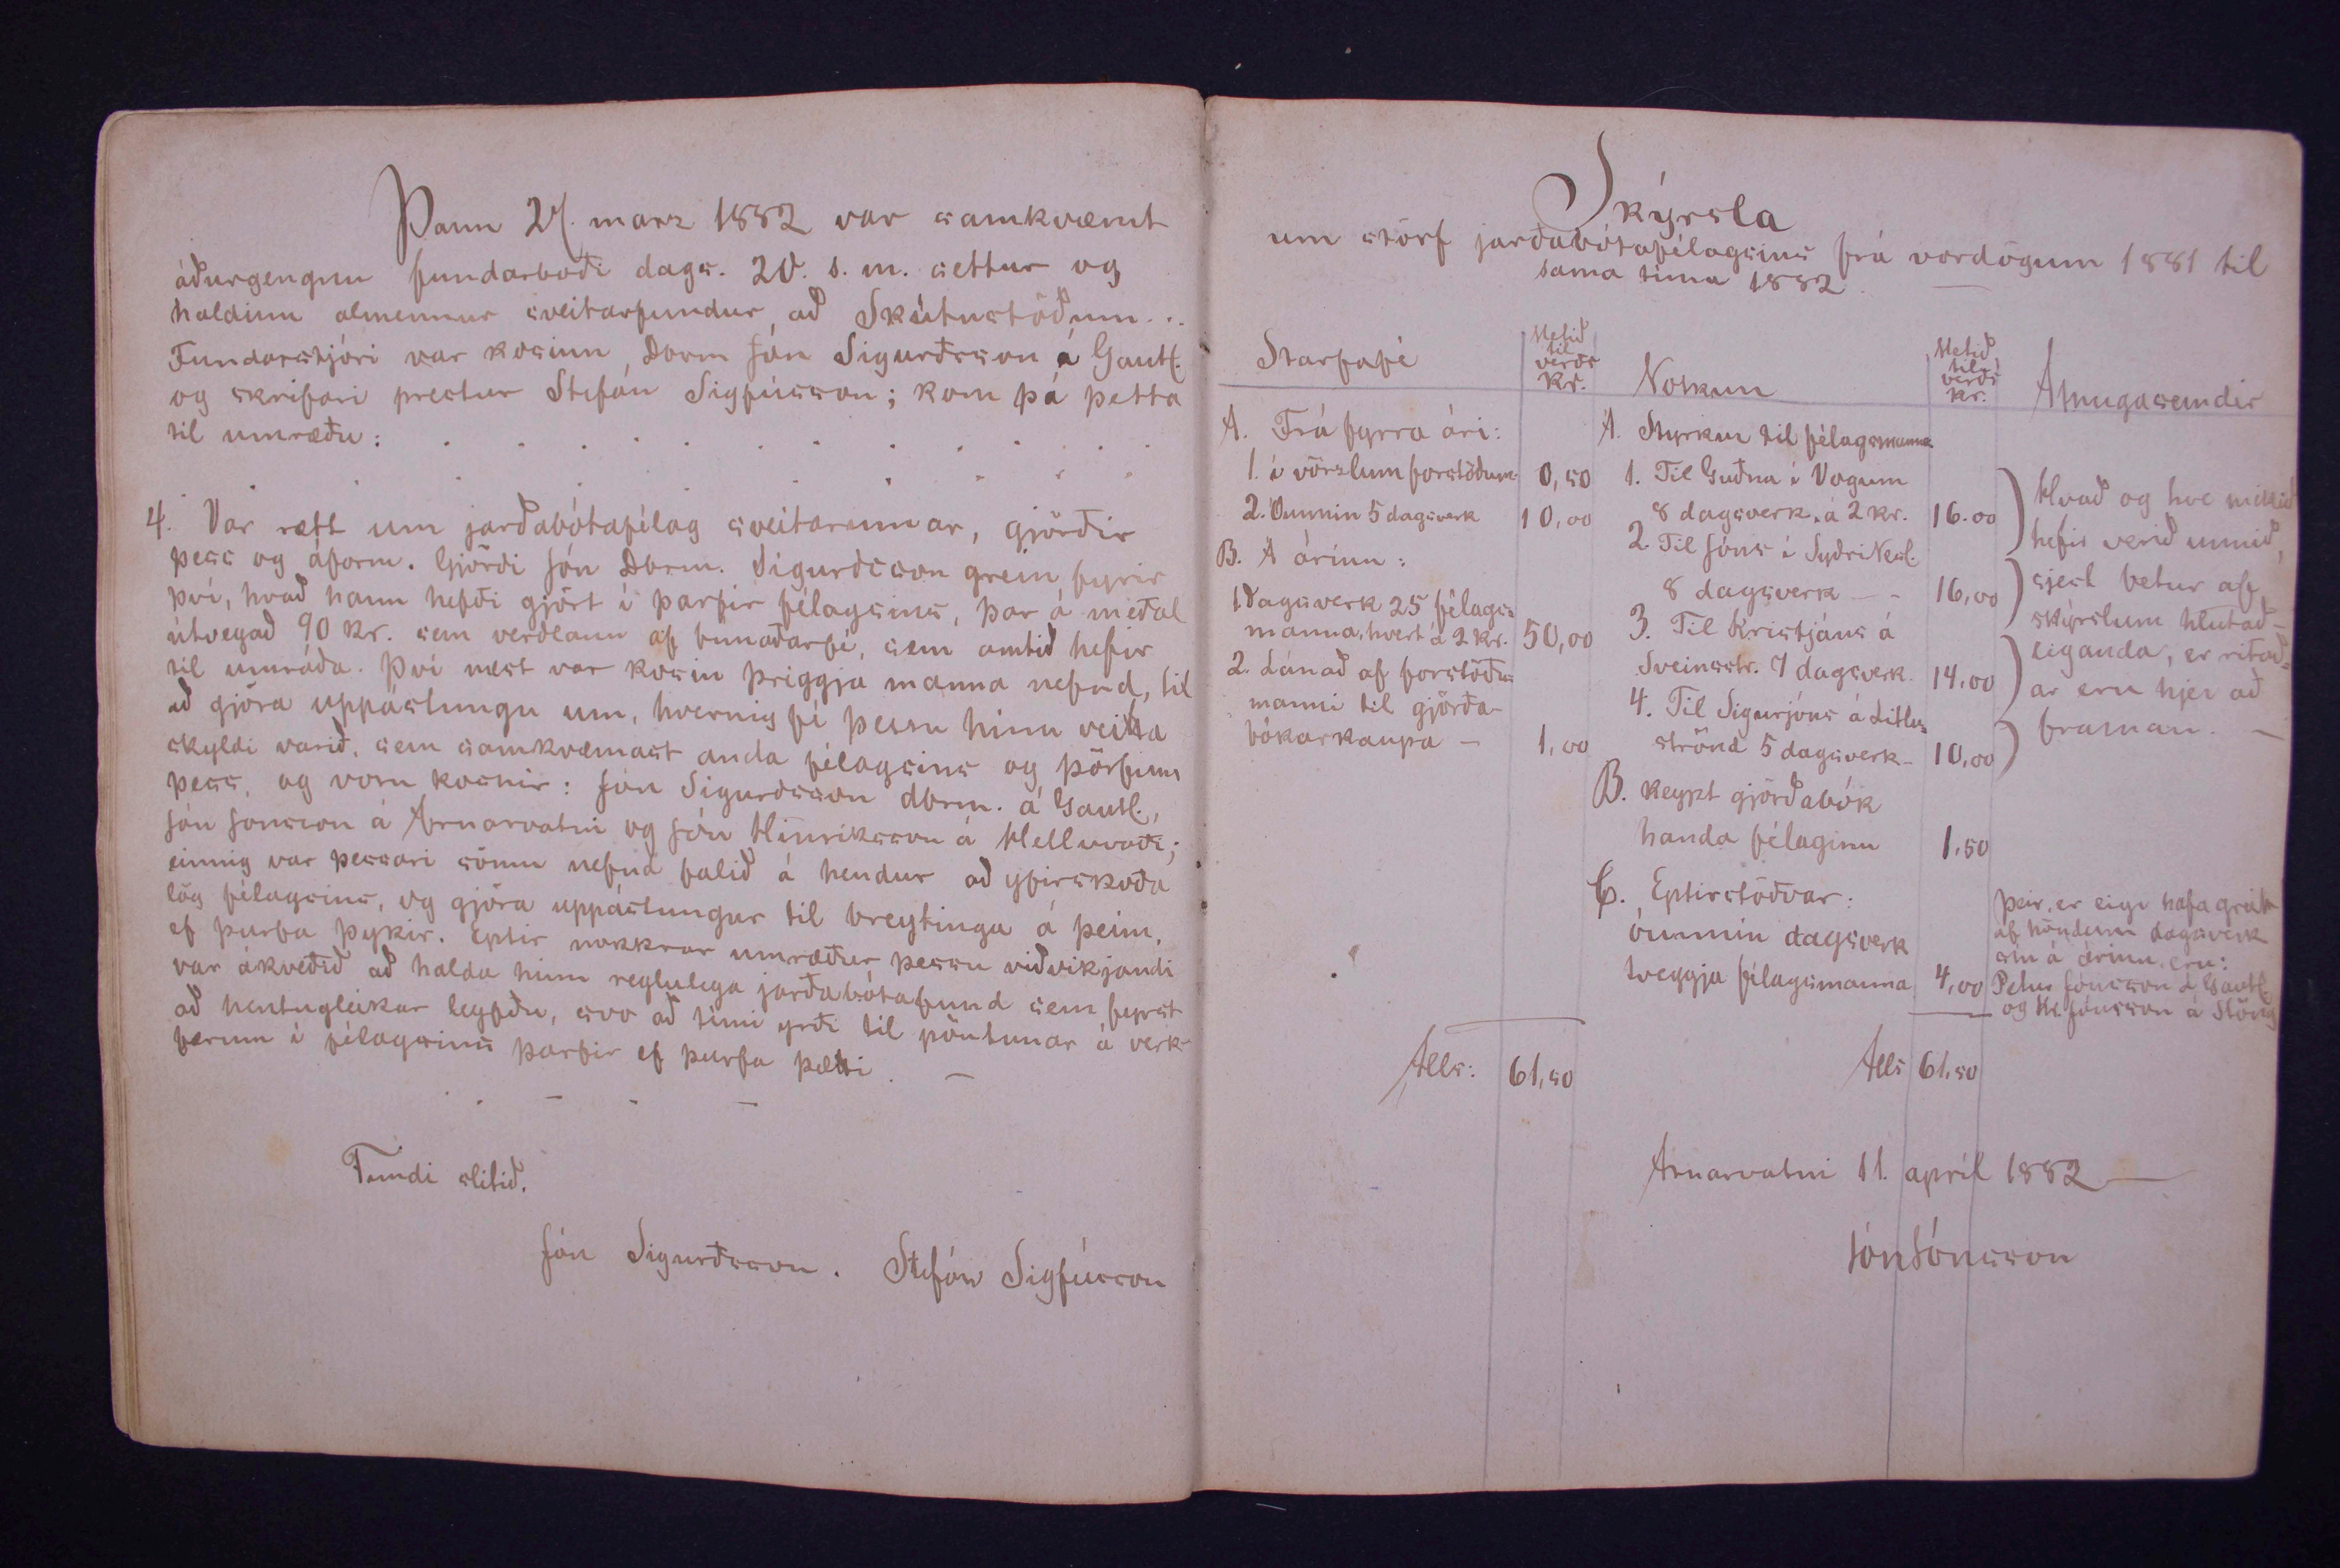 Þann 27. marz 1882 var samkvæmt
áðurgengnu fundarboði dags. 20. s. m. settur og
haldinn almennur sveitarfundur að Skútustöðum...
Fundarstjóri var kosinn Dbrm Jón Sigurðsson á Gautl.
og skrifari prestur Stefán Sigfússon; kom þá þetta
til umræðu:
4. Var rætt um jarðabótafélag sveitarinnar, gjörðir
þess og áform. Gjörði Jón Dbrm. Sigurðsson grein fyrir
því, hvað hann hefði gjört í þarfir félagsins, þar á meðal
útvegað 90 kr. sem verðlaun af búnaðarfé, sem amtið hefir
til umráða. Því næst var kosin þriggja manna nefnd, til
að gjöra uppástungu um, hvernig fé þessu hinu veitta
skyldi varið, sem samkvæmast anda félagsins og þörfum
þess, og voru kosnir: Jón Sigurðsson dbrm. á Gautl.,
Jón Jónsson á Arnarvatni og Jón Hinriksson á Helluvaði;
einnig var þessari sömu nefnd falið á hendur að yfirskoða
lög félagsins, og gjöra uppástungur til breytinga á þeim,
ef þurfa þykir. Eptir nokkrar umræður þessu viðvíkjandi
var ákveðið að halda hinn reglulega jarðabótafund sem fyrst
að hentugleikar leyfðu, svo að tími yrði til pöntunar á verk-
færum í félagsins þarfir ef þurfa þætti. —
Fundi slitið.
Jón Sigurðsson. Stefán Sigfússon
Skýrsla
um störf jarðabótafélagsins frá vordögum 1881 til
sama tíma 1882
Starfsfé
Metið
til
verðs
Kr.
Notkun
Metið
til
verðs
kr.
Athugasemdir
A. Frá fyrra ári:
1. í vörzlum forstöðum. 0,50
2. Óunnin 5 dagsverk 10,00
B. Á árinu:
1. Dagsverk 25 félags=
manna, hvert á 2 kr. 50,00
2. Lánað af forstöðu=
manni til gjörða-
bókarkaupa – 1,00
Alls: 61,50
A. Styrkur til félagsmanna
1. Til Guðna í Vogum
8 dagsverk, á 2 kr. 16.00
2. Til Jóns í Syðri Nesl.
8 dagsverk – - 16,00
3. Til Kristjáns á
Sveinsstr. 7 dagsverk 14,00
4. Til Sigurjóns á Litlu=
strönd 5 dagsverk – 10,00
B. Keypt gjörðabók
handa félaginu 1,50
C. Eptirstöðvar:
óunnin dagsverk
tveggja félagsmanna 4,00
Alls 61,50
Hvað og hve mikið
hefir verið unnið,
sjest betur af
skýrslum hlutað-
eiganda, er ritað=
ar eru hjer að
framan. —
Þeir, er eigi hafa greitt
af höndum dagsverk
sín á árinu, eru:
Petur Jónsson á Gautl.
og Kr. Jónsson á Stöng
Arnarvatni 11. apríl 1882
Jón Jónsson